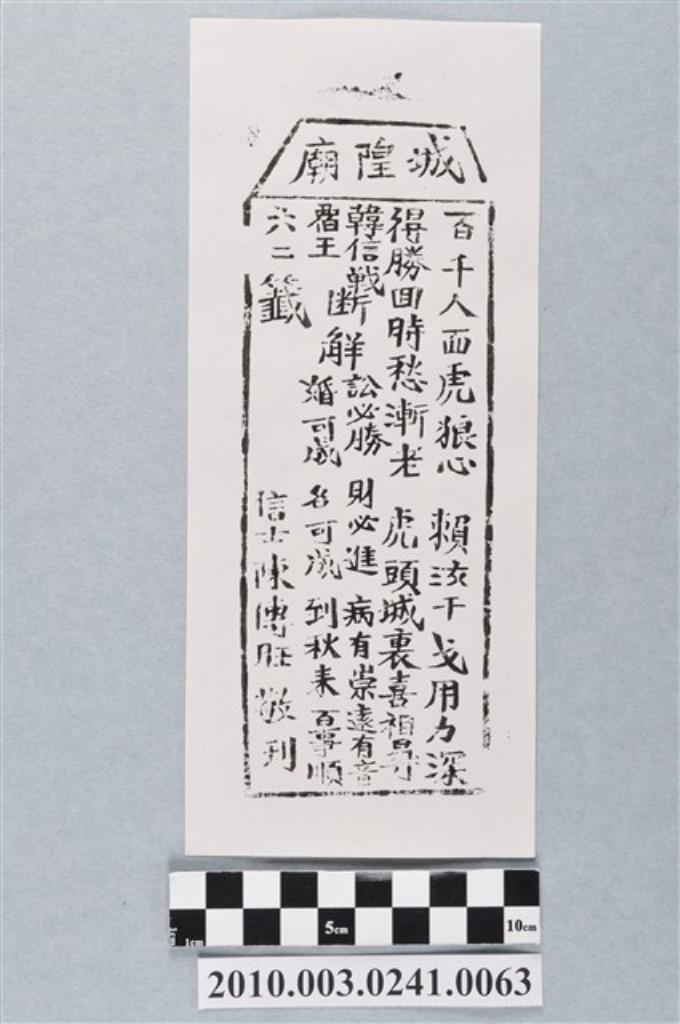 城隍廟
百千人面虎狼心　賴汝干戈用力深
得勝回時愁漸老　虎頭城裏喜相尋
韓信戰霸王
断　訟必勝　財必進　病有祟遠有音
解　婚可成　名可成　到秋来百事順
六二籤
信士陳傳旺敬刊
1cm
5cm
10cm
2010.003.0241.0063